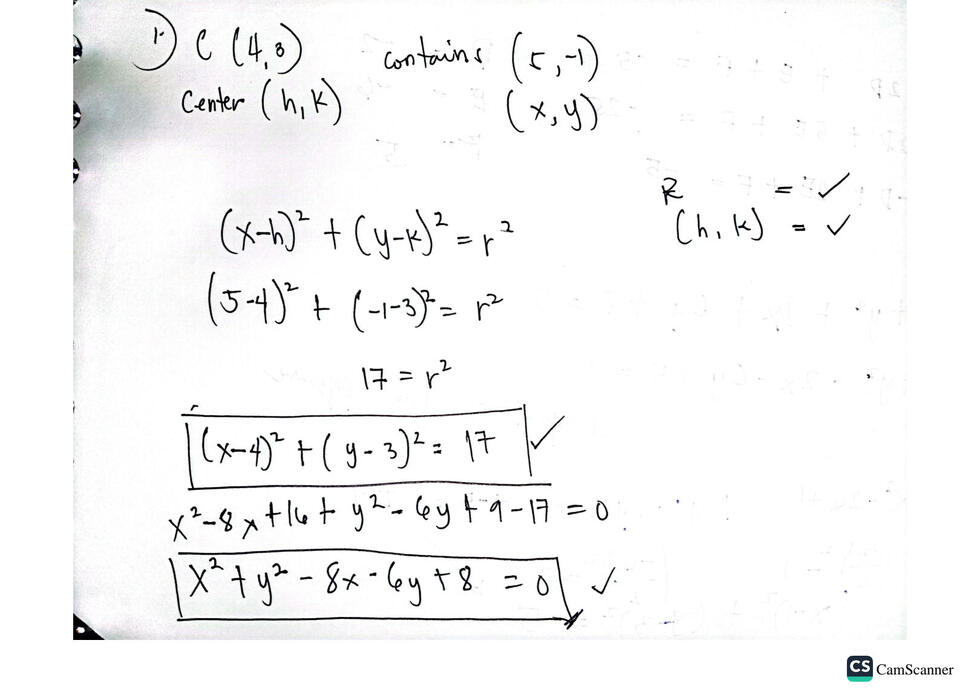 1.) C (4,3) contains (5,-1)
Center (h,k) (x,y)
R = ✓
(h,k) = ✓
(x-h)² + (y-k)² = r²
(5-4)² + (-1-3)² = r²
17 = r²
(x-4)² + (y-3)² = 17 ✓
x²-8x+16+y²-6y+9-17 = 0
x²+y²-8x-6y+8 = 0 ✓
CS CamScanner